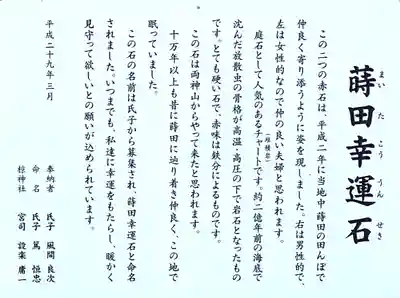 蒔田幸運石
まいたこううんせき
この二つの赤石は、平成二年に当地中蒔田の田んぼで
仲良く寄り添うように姿を現しました。右は男性的で、
左は女性的なので仲の良い夫婦と思われます。
庭石として人気のあるチャート(堆積岩)です。約二億年前の海底で
沈んだ放散虫の骨格が高温・高圧の下で岩石となったもの
です。とても硬い石で、赤味は鉄分によるものです。
この石は両神山からやって来たと思われます。
十万年以上も昔に蒔田に辿り着き仲良く、この地で
眠っていました。
この石の名前は氏子から募集され、蒔田幸運石と命名
されました。いつまでも、私達に幸運をもたらし、暖かく
見守って欲しいとの願いが込められています。
平成二十九年三月
奉納者 氏子 風間 良次
命名 氏子 篤 恒忠
椋神社 宮司 設楽 庸一